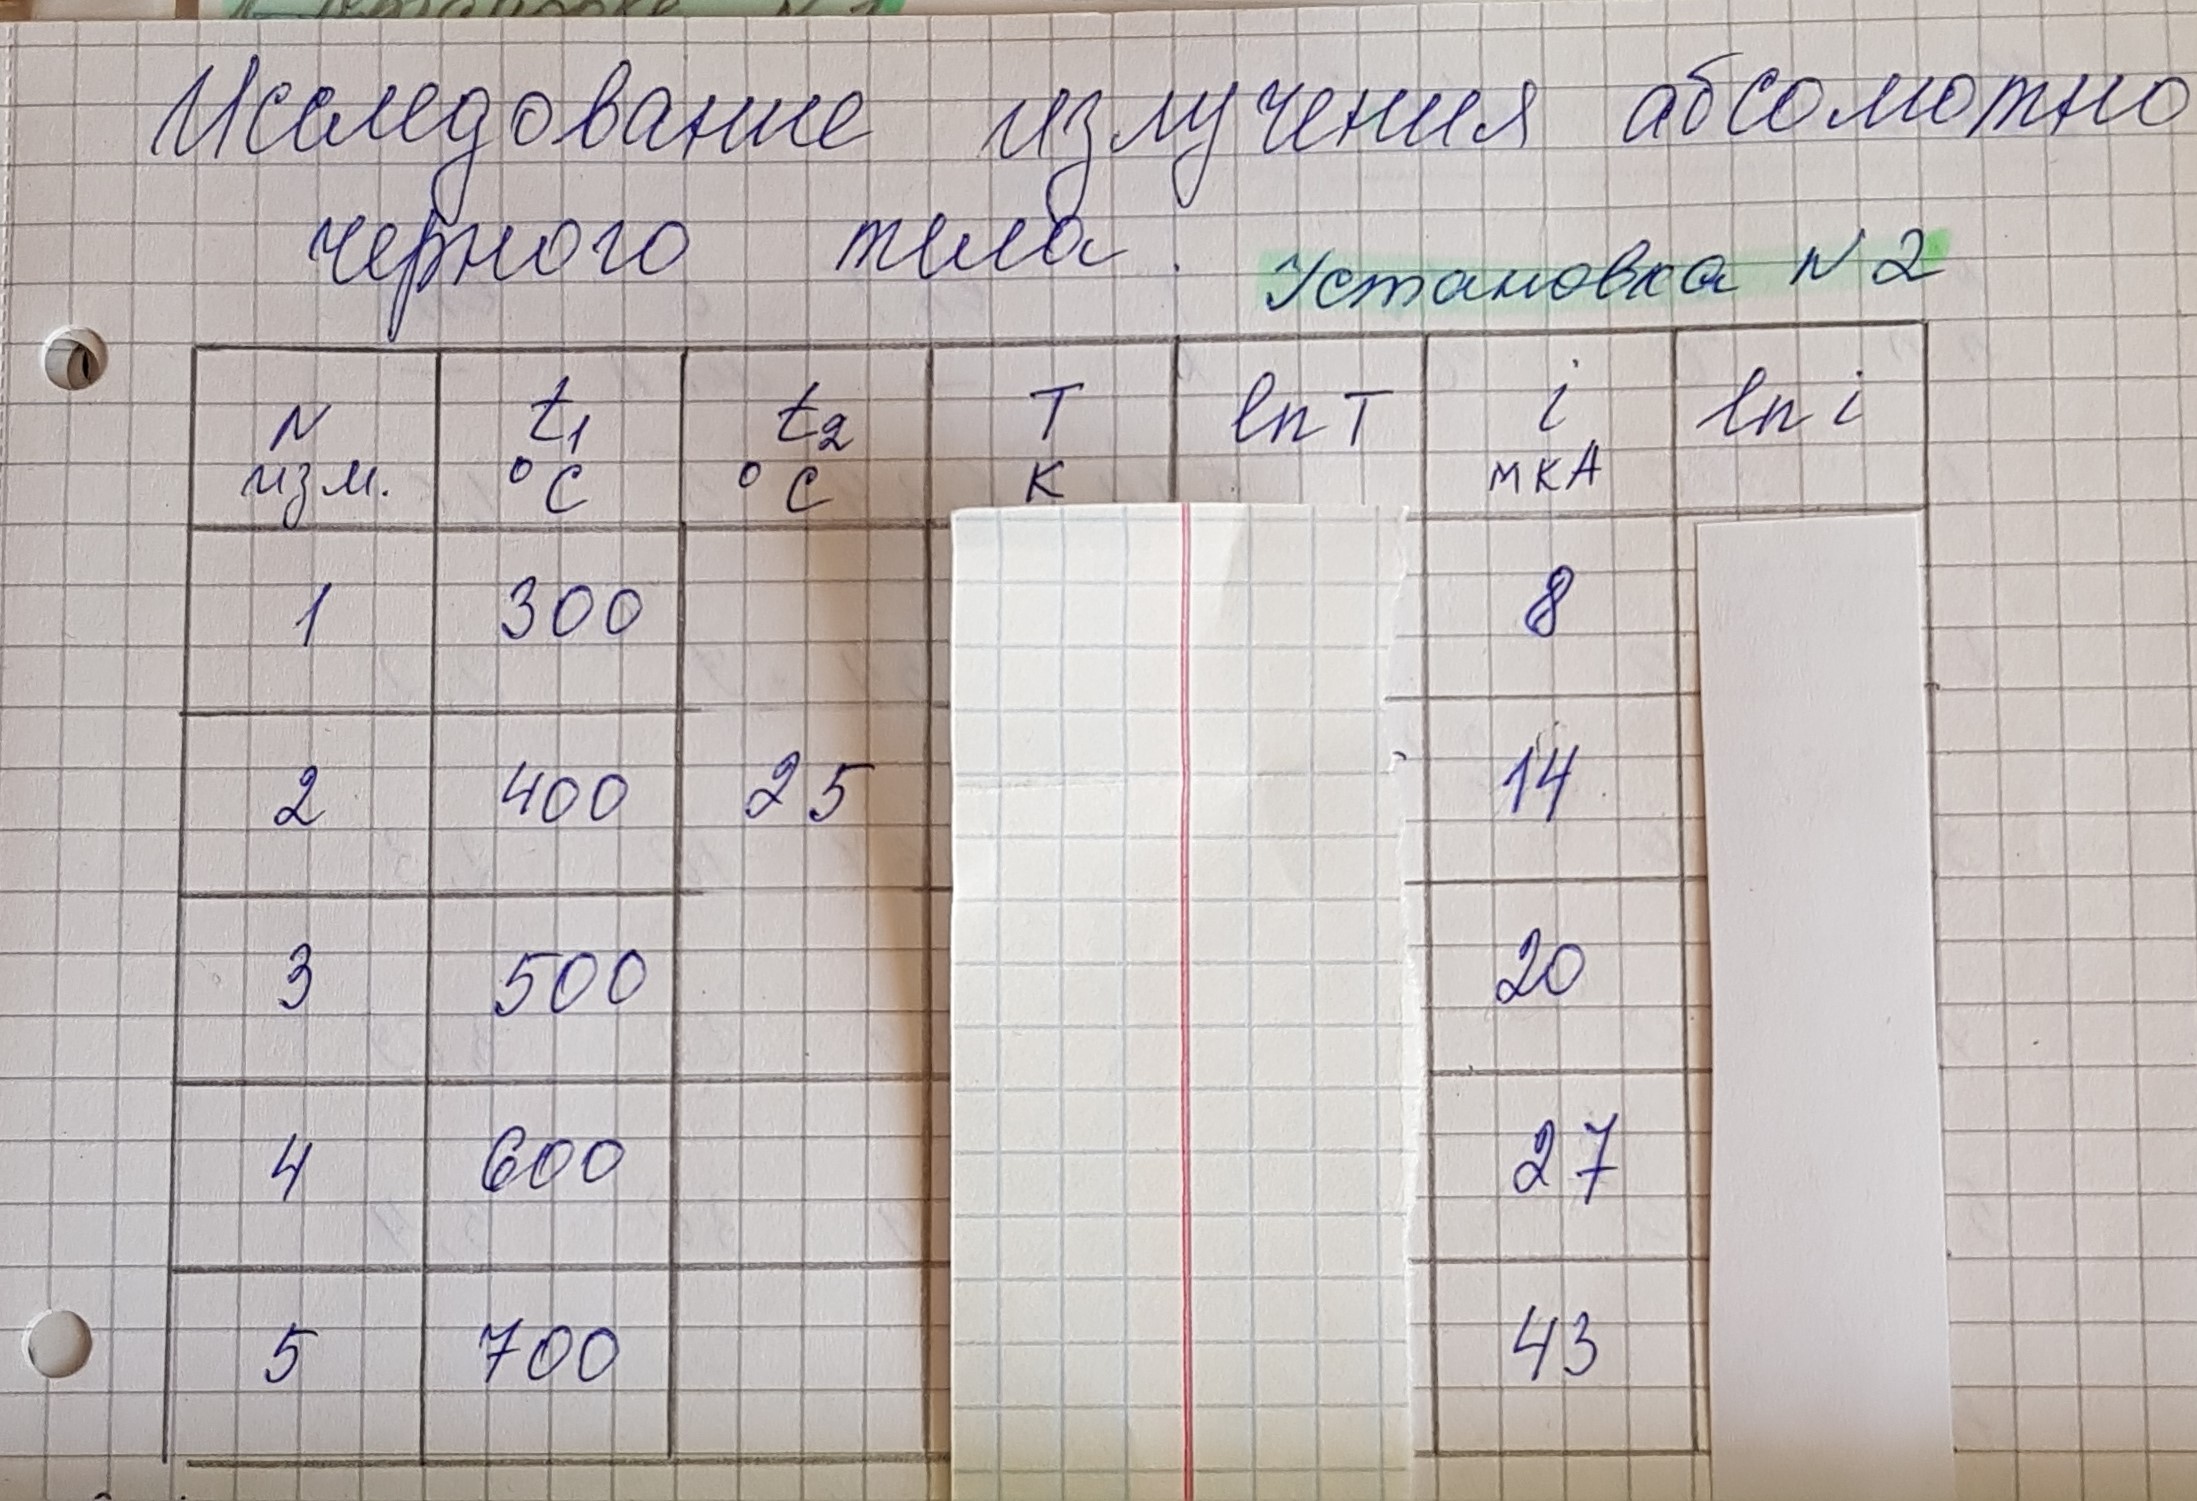 Исследование излучения абсолютно
черного тела.
Установка N 2
N изм. t1 °C t2 °C T K ln T i мкА ln i
1 300 8
2 400 25 14
3 500 20
4 600 27
5 700 43